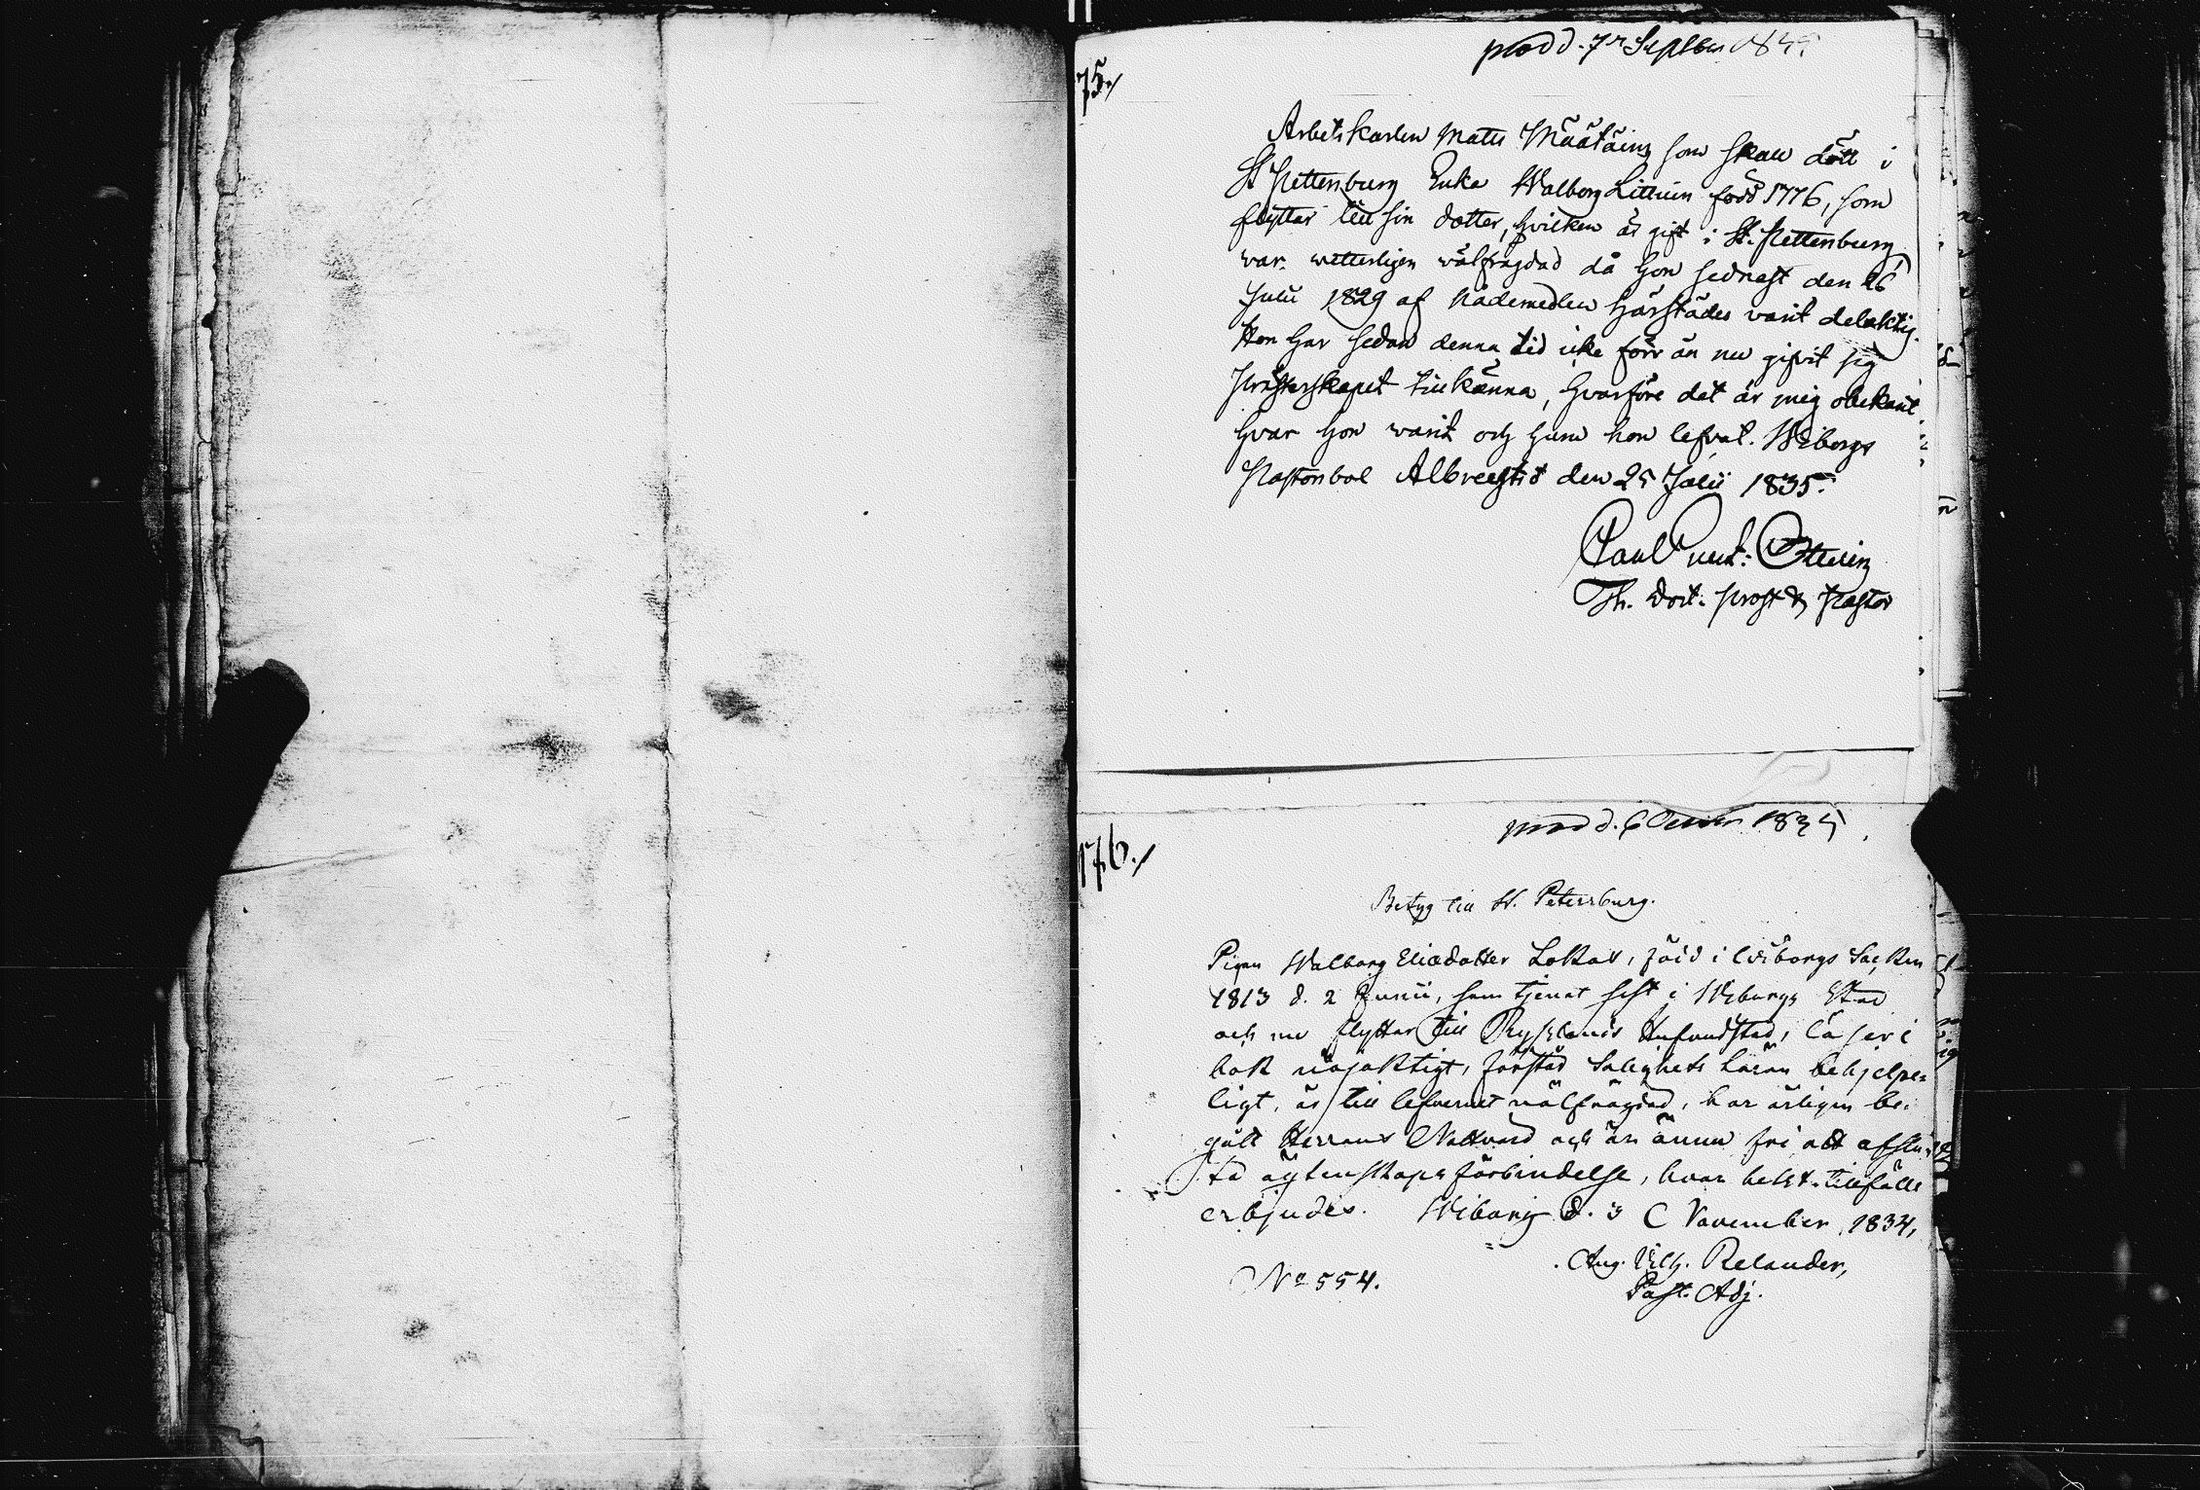 75./
prod d. 7de Septber 183
Arbetskarlen Mats Määtäinz som skall dött i
St Pettersburg Enka Walborg Littuin född 1776, som
flyttar till sin dotter, hvilken är gift i St. Pettersburg
var witterligen wälfrägdad då hon sednast den 26
Julii 1829 af nådemedlen härstädes warit delaktig.
Hon har sedan denna tid icke förr än nu gifvit sig
Prästerskapet tillkänna, hvarföre det är mig obekant
hvar hon warit och huru hon lefvat. Wiborgs
Pastorsbol Albrechts d den 25 Julii 1835.
Paul
Th. Doct. Prost & Pastor
176./
prod d. 6 1835
Betyg till St. Petersburg.
Pigan Walborg Eliædotter Lokas, född i Wiborgs Socken
1813 d. 2 Junii, som tjenat sist i Wiborgs Stad
och nu flyttar till Rysslands Hufvudstad, läser i
bok nöjaktigt, förstår Salighets Läran behjelpe=
ligt, är till lefvernet välfrägdad, har årligen be-
gått Herrans Nattvard och är ännu fri att afslu=
ta ägtenskaps förbindelse, hvar helst tillfälle
erbjudes. Wiborg d. 3 November 1834,
Aug. Vilh. Relander,
No 554.
Past. Adj.